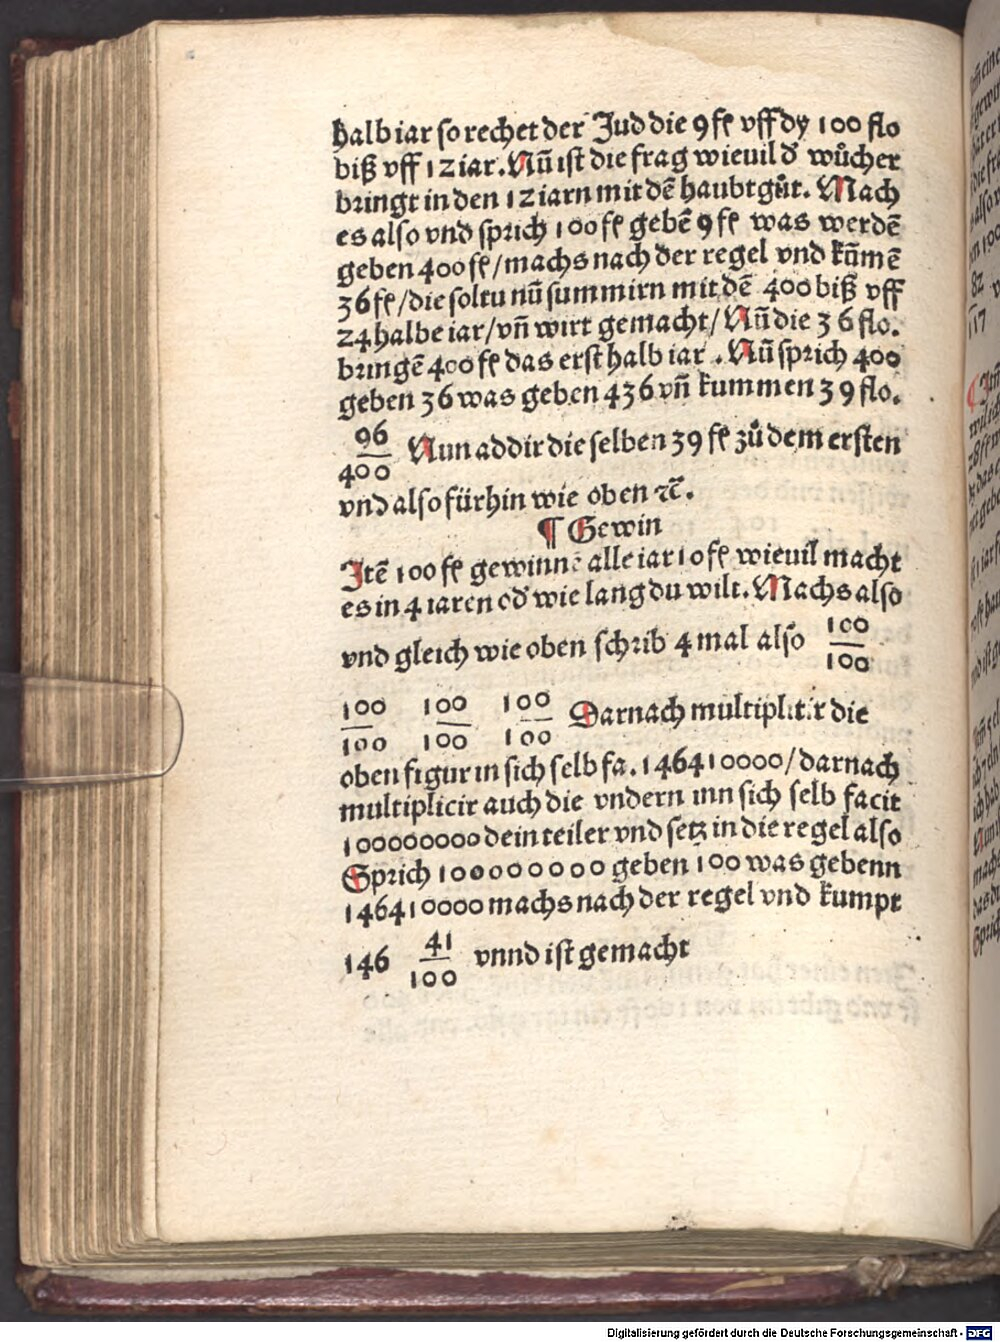 halb iar so rechet der Jud die 9 fl vff dy 100 flo
biß vff 12 iar. Nū ist die frag wieuil d' wůcher
bringt in den 12 iarn mit dē haubtgůt. Mach
es also vnd sprich 100 fl gebē 9 fl was werdē
geben 400 fl/machs nach der regel vnd kūmē
36 fl/die soltu nū summirn mit dē 400 biß vff
24 halbe iar/vn̄ wirt gemacht/Nū die 36 flo.
bringē 400 fl das erst halb iar. Nū sprich 400
geben 36 was geben 436 vn̄ kummen 39 flo.
96/400 Nun addir die selben 39 fl zů dem ersten
vnd also fürhin wie oben ꝛc̄.
¶ Gewin
Itē 100 fl gewinnē alle iar 10 fl wieuil macht
es in 4 iaren od' wie lang du wilt. Machs also
vnd gleich wie oben schrib 4 mal also 100/100
100/100 100/100 100/100 Darnach multiplicir die
oben figur in sich selb fa. 146410000/darnach
multiplicir auch die vndern inn sich selb facit
100000000 dein teiler vnd setz in die regel also
Sprich 100000000 geben 100 was gebenn
146410000 machs nach der regel vnd kumpt
146 41/100 vnnd ist gemacht
Digitalisierung gefördert durch die Deutsche Forschungsgemeinschaft - DFG